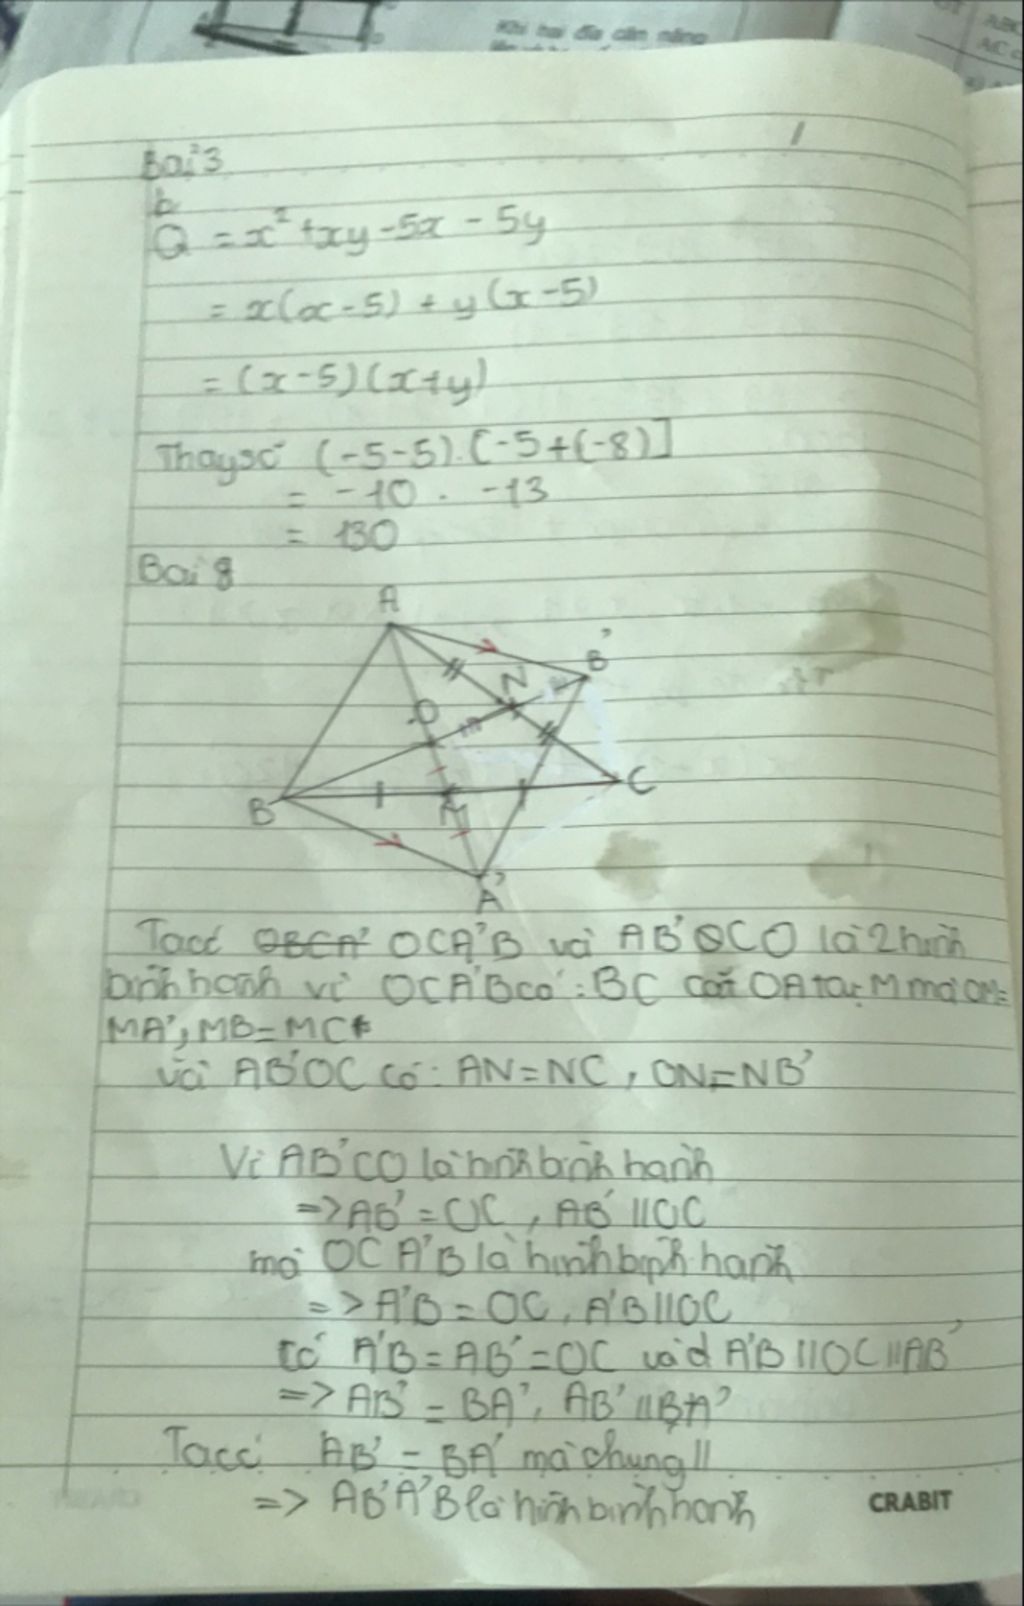 Khi hai đĩa cân nặng
ABC
AC c
1
Bài 3
b
Q = x² + xy - 5x - 5y
= x(x - 5) + y(x - 5)
= (x - 5)(x + y)
Thay số (-5-5).[-5+(-8)]
= -10 . -13
= 130
Bài 8
A
B'
N
O
B
M
C
A'
Ta có OBCA' OCA'B và AB'OCO là 2 hình
bình hành vì OCA'B có : BC cắt OA tại M mà OM=
MA', MB=MC
và AB'OC có: AN=NC, ON=NB'
Vì AB'CO là hình bình hành
=> AB' = OC, AB' // OC
mà OCA'B là hình bình hành
=> A'B = OC, A'B // OC
Có A'B = AB' = OC và A'B // OC // AB'
=> AB' = BA', AB' // BA'
Ta có AB' = BA' mà chúng //
=> AB'A'B là hình bình hành
CRABIT